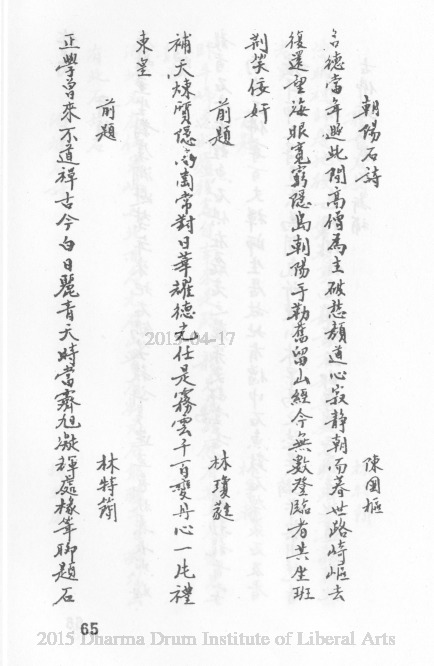 朝陽石詩 陳國樞
當年遯此間高僧為主破愁顏道心寂靜朝而暮世路崎嶇去
復還望海眼寬窮隱島朝陽手勒舊留山經今無數登臨者共坐班
荊笑佞奸
前題 林瓊蕤
補天煉質隱崗常對日華耀德光任是霧雲千百變丹心一片禮
東皇
前題 林特簡
正學曾來不道禪古今白日麗青天時當齊旭凝輝處椽筆聊題石
65
2015-04-17
2015 Dharma Drum Institute of Liberal Arts